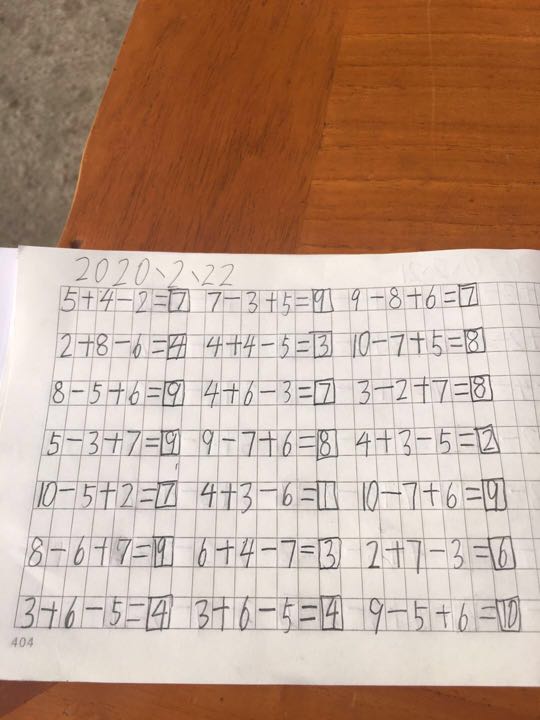 2020、2、22
5+4-2=7 7-3+5=9 9-8+6=7
2+8-6=4 4+4-5=3 10-7+5=8
8-5+6=9 4+6-3=7 3-2+7=8
5-3+7=9 9-7+6=8 4+3-5=2
10-5+2=7 4+3-6=1 10-7+6=9
8-6+7=9 6+4-7=3 2+7-3=6
3+6-5=4 3+6-5=4 9-5+6=10
404